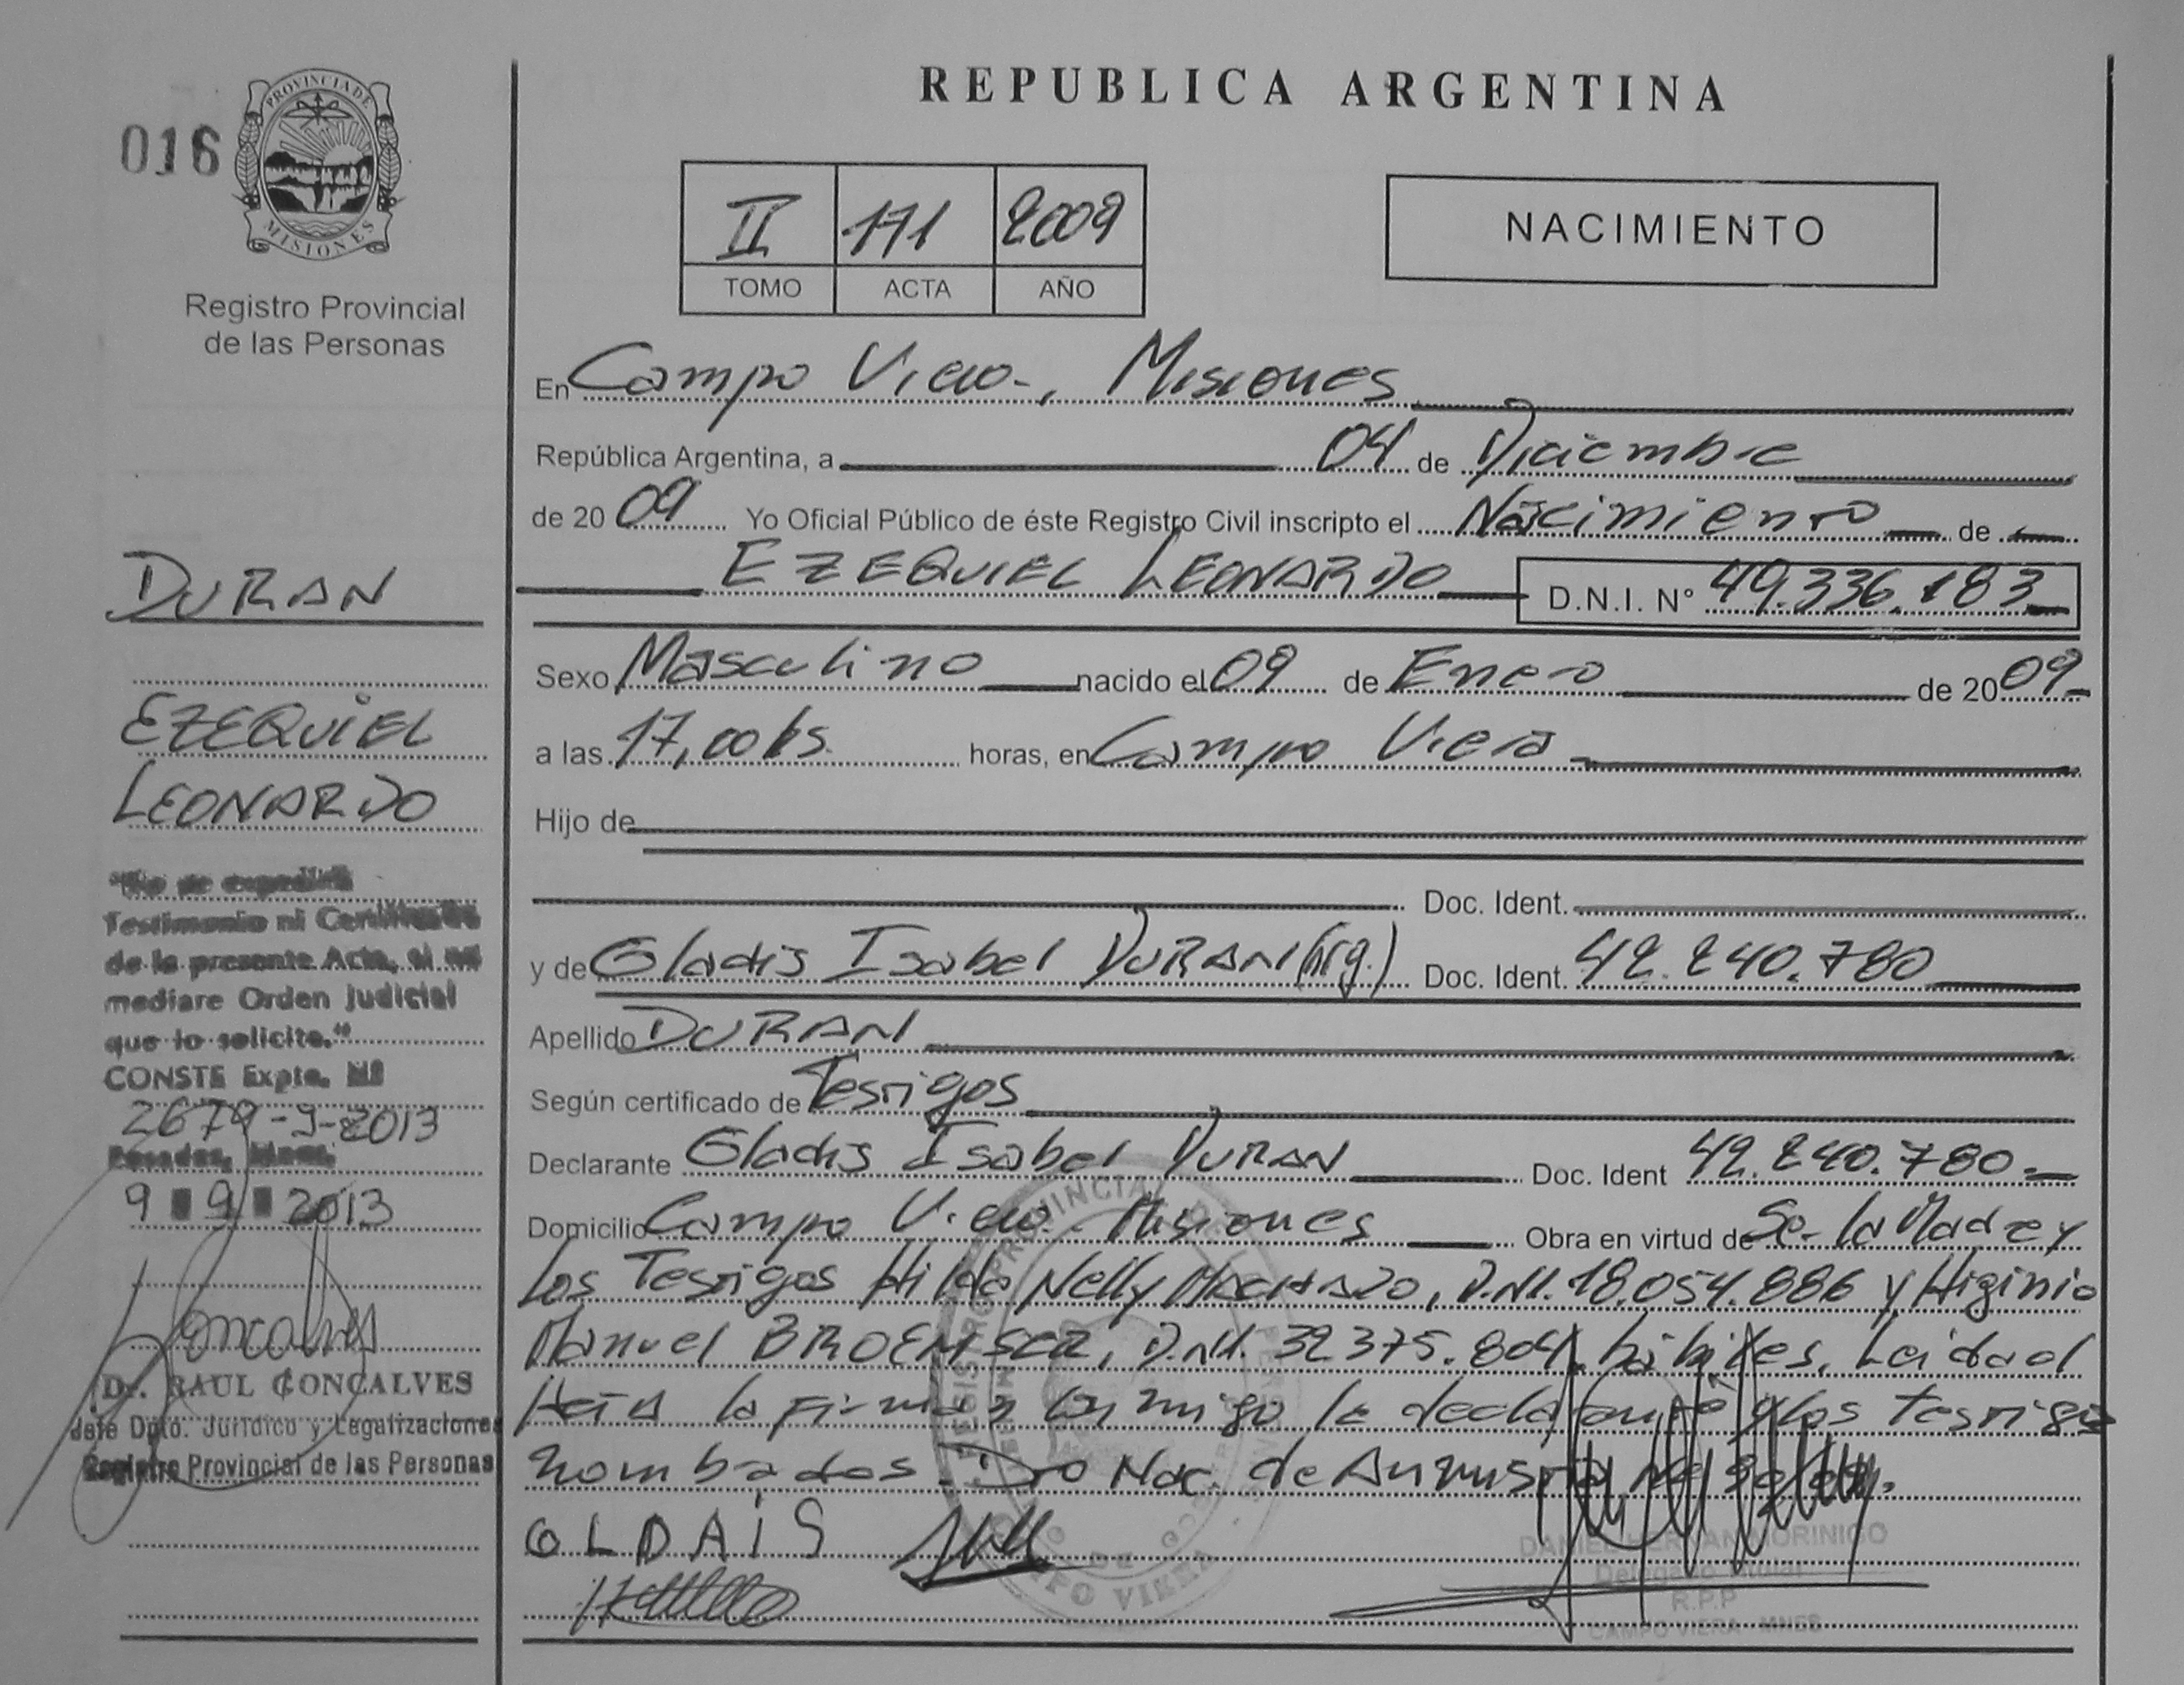 REPUBLICA ARGENTINA
016
PROVINCIA DE
MISIONES
Registro Provincial
de las Personas
II 171 2009
TOMO ACTA AÑO
NACIMIENTO
En Campo Viera, Misiones
República Argentina, a 04 de Diciembre
de 20 09 Yo Oficial Público de éste Registro Civil inscripto el Nacimiento de
EZEQUIEL LEONARDO D.N.I. N° 49.336.183
Sexo Masculino nacido el 09 de Enero de 20 09
a las 17,00 hs. horas, en Campo Viera
Hijo de
Doc. Ident.
y de Gladis Isabel DURAN (Arg.) Doc. Ident. 42.240.780
Apellido DURAN
Según certificado de Testigos
Declarante Gladis Isabel DURAN Doc. Ident 42.240.780
Domicilio Campo Viera Misiones Obra en virtud de Se- la Madre y
los Testigos Hilda Nelly MACHADO, D.N.I. 18.054.886 y Higinio
Manuel D.N.I. 32375.804, hábiles. Leida el
Acta la firman conmigo la declarante y los testigos
nombrados. Dto Nac. de
GLDAiS
DURAN
EZEQUIEL
LEONARDO
"No se expedirá
Testimonio ni Certificado
de la presente Acta, si no
mediare Orden judicial
que lo solicite."
CONSTE Expte. Nº
2679-9-2013
Posadas, Mnes.
9 9 2013
Goncalves
Dr. RAUL GONCALVES
Jefe Dpto. Jurídico y Legalizaciones
Registro Provincial de las Personas
REGISTRO PROVINCIAL
CAMPO VIERA
DANIEL HERNAN MORINIGO
Delegado Titular
R.P.P
CAMPO VIERA - MNES